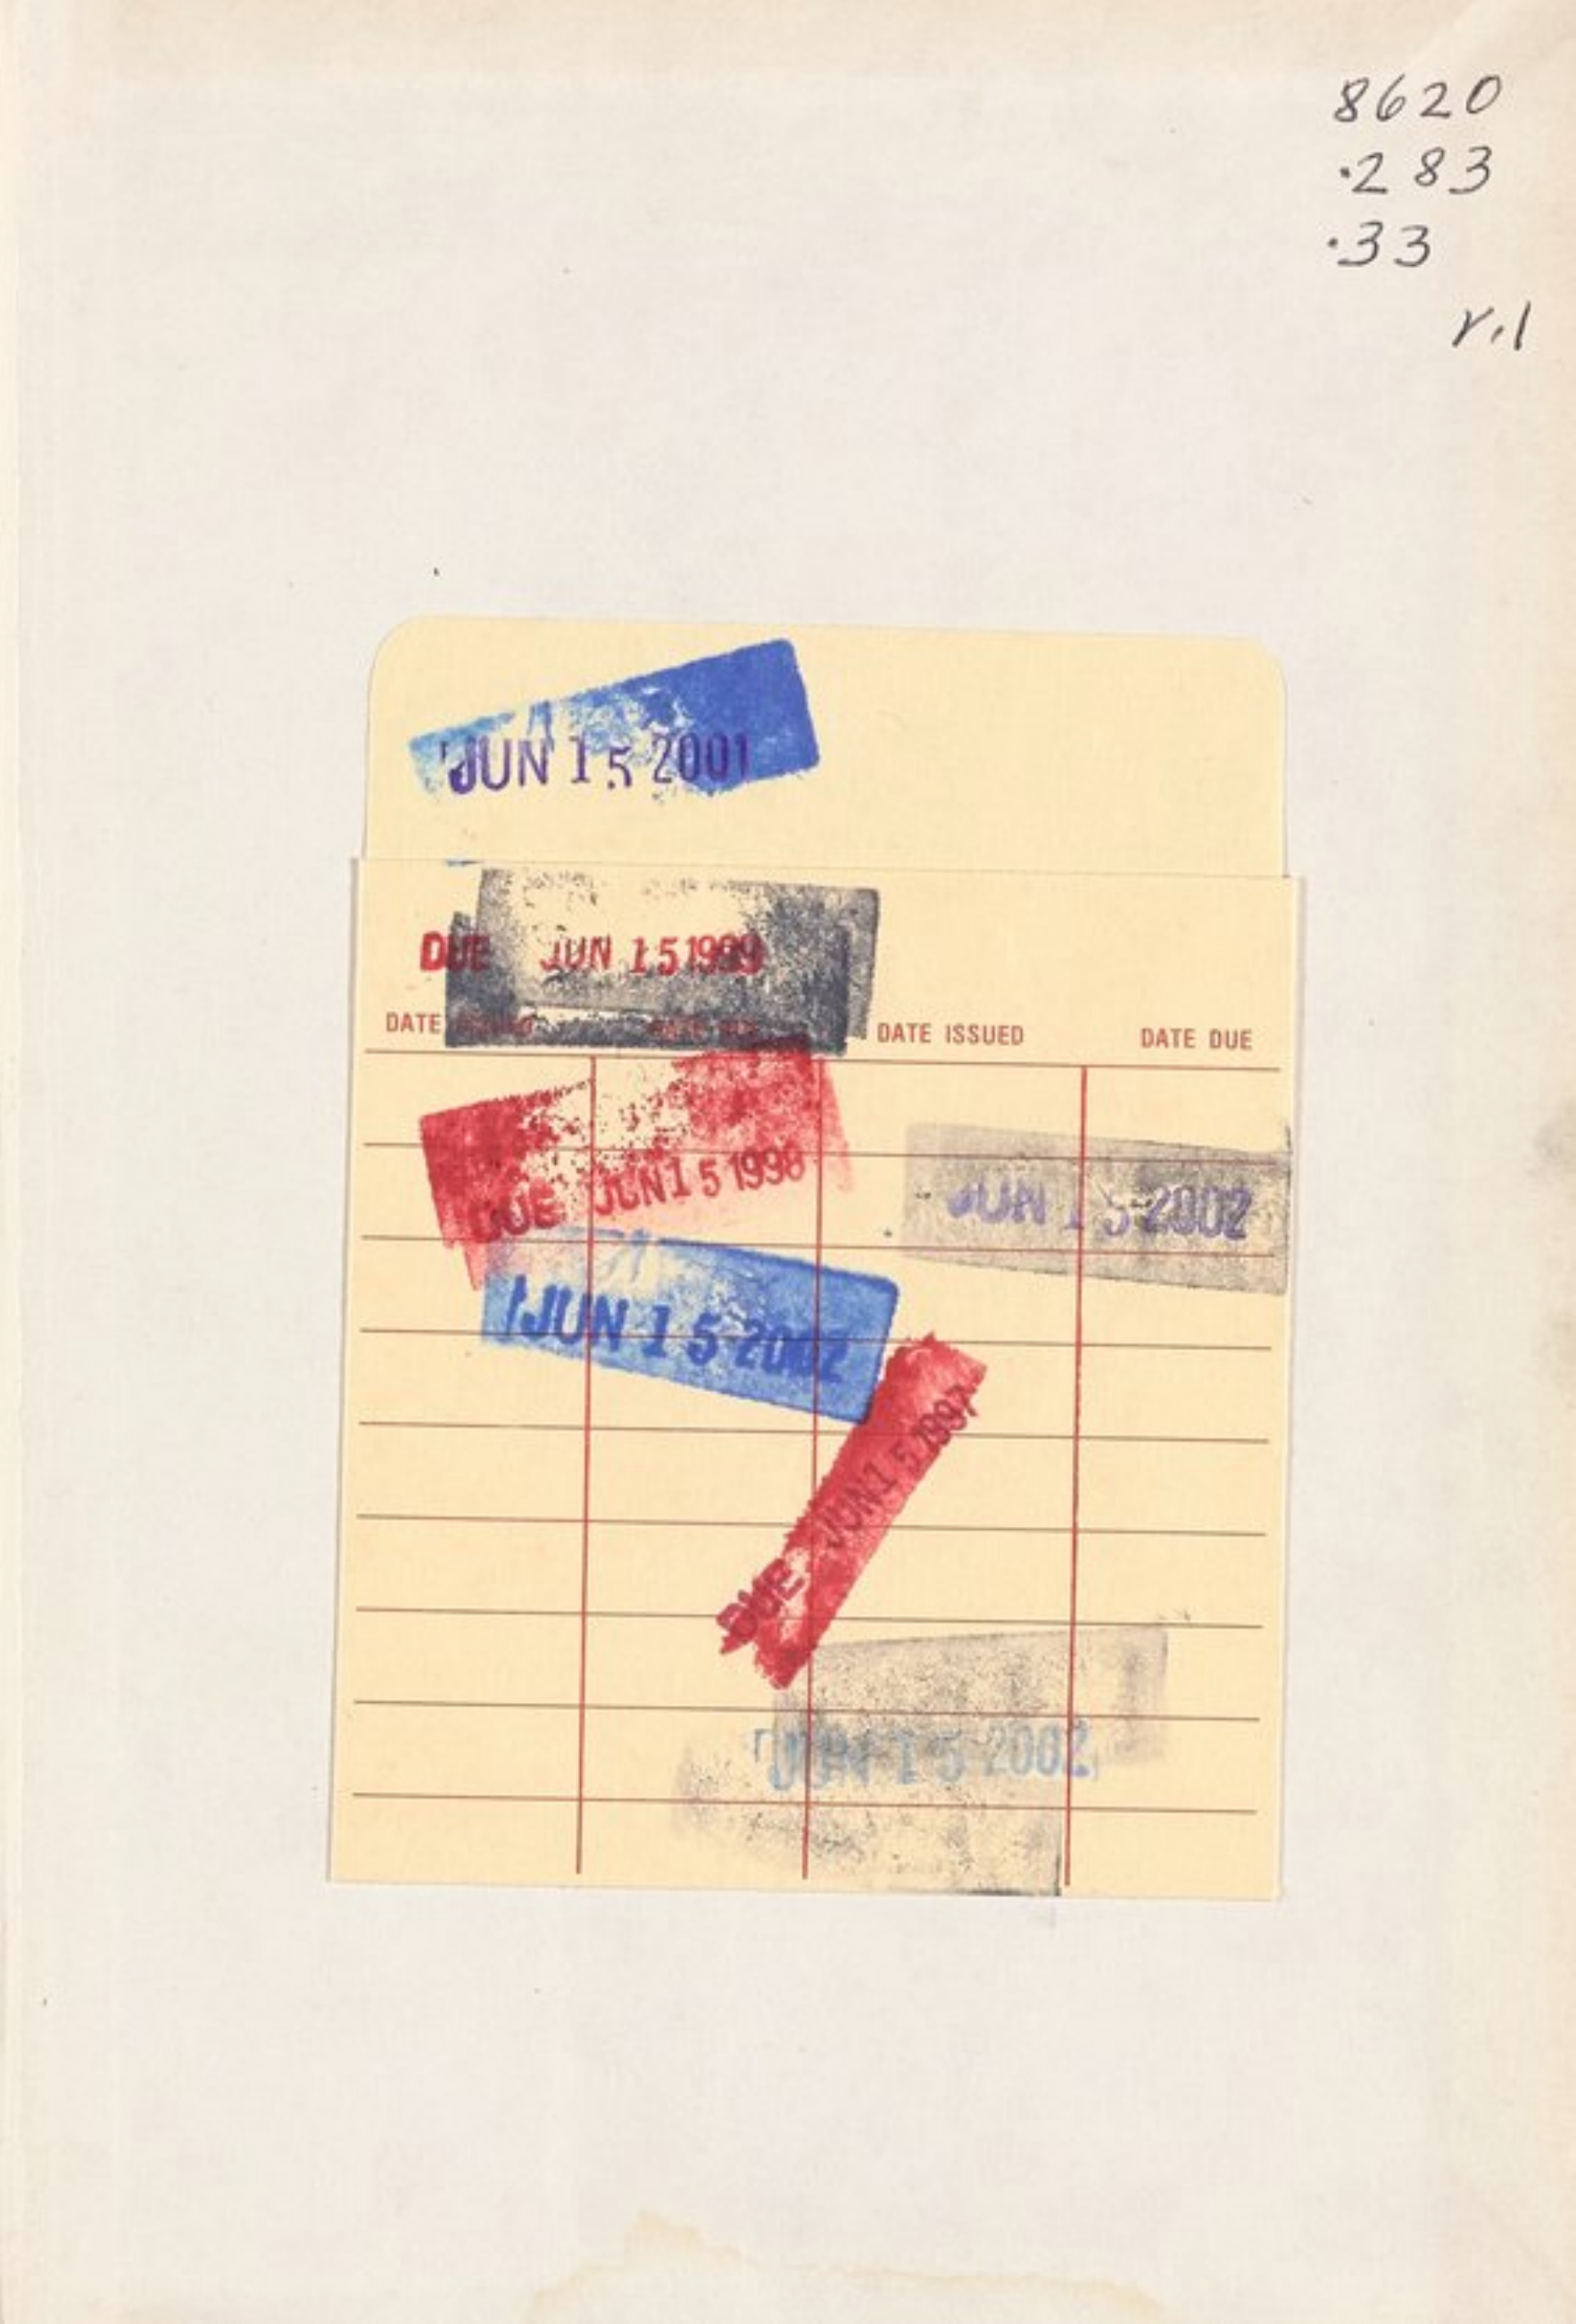 8620
.283
.33
v.1
JUN 15 2001
DUE JUN 15 1999
DATE ISSUED DATE DUE DATE ISSUED DATE DUE
DUE JUN 15 1998
JUN 15 2002
JUN 15 2002
DUE JUN 15 1997
JUN 15 2002